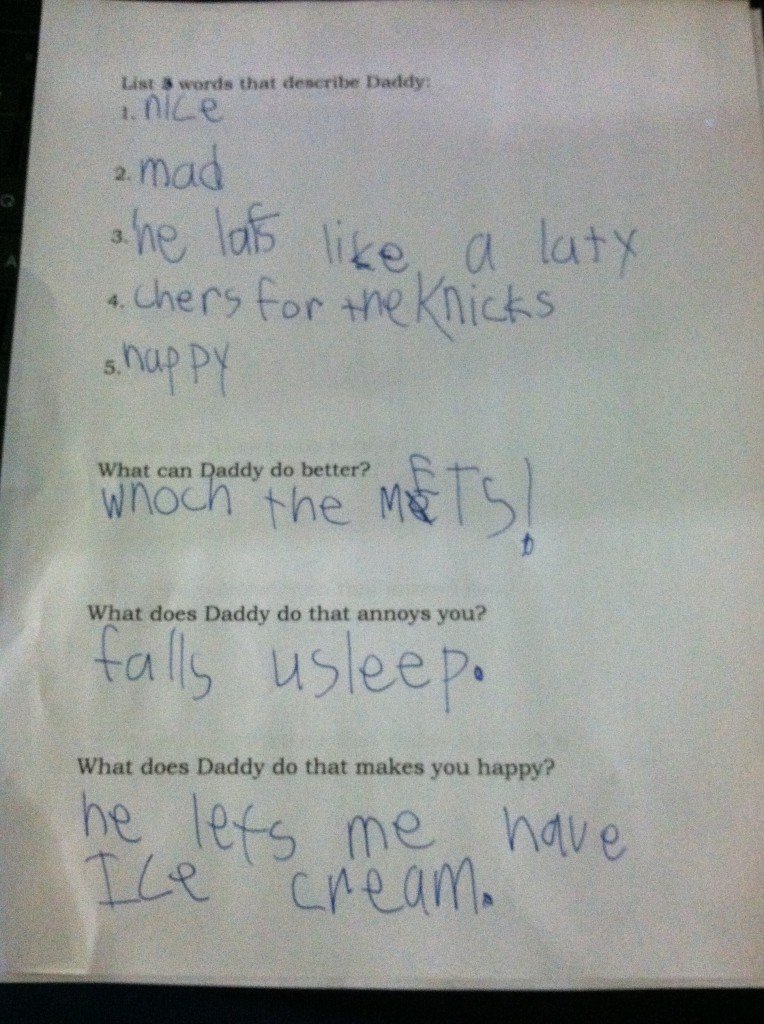 List 5 words that describe Daddy:
1. nice
2. mad
3. he lafs like a latx
4. chers for the Knicks
5. happy
What can Daddy do better?
whoch the METS!
What does Daddy do that annoys you?
falls usleep.
What does Daddy do that makes you happy?
he lets me have
Ice cream.